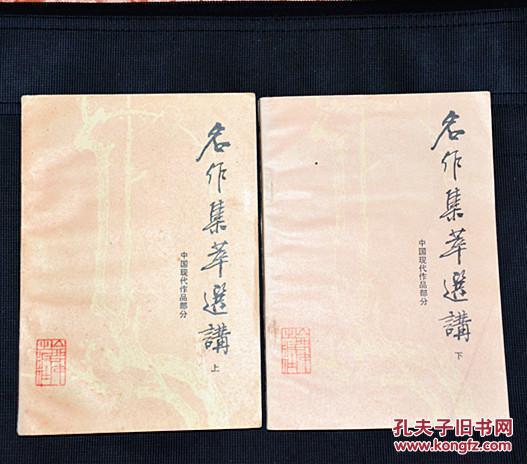 名作集萃選講
中国现代作品部分
上
名作集萃選講
中国现代作品部分
下
孔夫子旧书网
www.kongfz.com